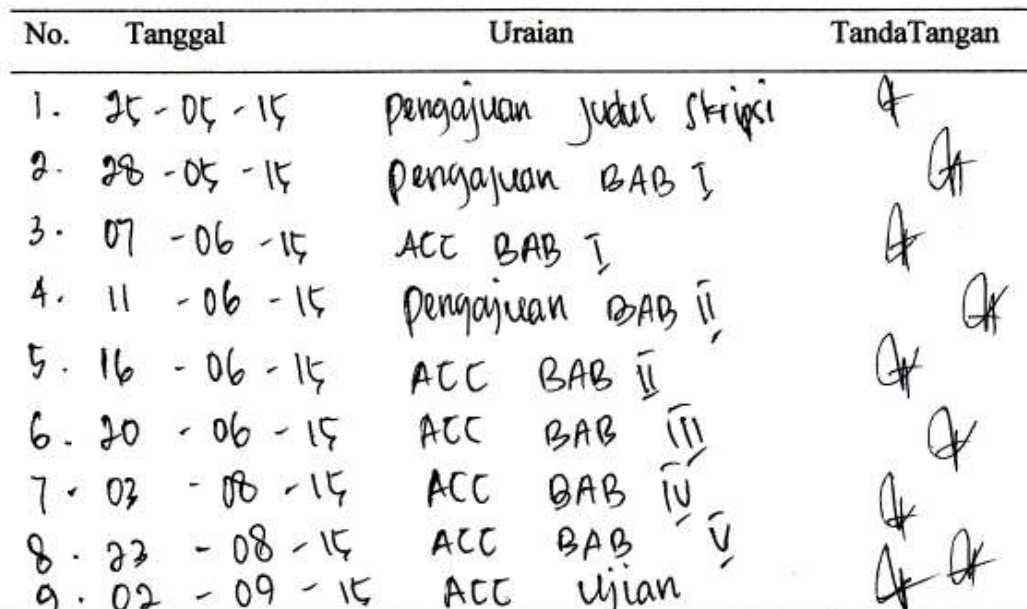 No. Tanggal Uraian TandaTangan
1. 25-05-15 pengajuan judul skripsi
2. 28-05-15 pengajuan BAB I
3. 07-06-15 ACC BAB I
4. 11-06-15 pengajuan BAB II
5. 16-06-15 ACC BAB II
6. 20-06-15 ACC BAB III
7. 03-08-15 ACC BAB IV
8. 23-08-15 ACC BAB V
9. 02-09-15 ACC Ujian